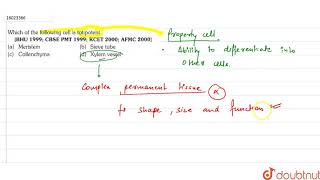 16023366
Which of the following cell is totipotent
[BHU 1999; CBSE PMT 1999; KCET 2000; AFMC 2000]
(a) Meristem (b) Sieve tube
(c) Collenchyma (d) Xylem vessel
Property cell
• Ability to differentiate into
other cells.
Complex permanent tissue
shape, size and function
doubtnut